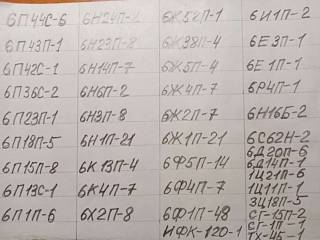 6П44С-6
6П43П-1
6П42С-1
6П36С-2
6П23П-1
6П18П-5
6П15П-8
6П13С-1
6П1П-6
6Н23П-8
6Н14П-7
6Н6П-2
6Н3П-8
6Н1П-21
6К13П-4
6К4П-7
6Х2П-8
6Ж38П-4
6Ж5П-4
6Ж4П-7
6Ж2П-7
6Ж1П-21
6Ф5П-14
6Ф4П-7
6Ф1П-48
ИФК-120-1
6И1П-2
6Е3П-1
6Е1П-1
6Р4П-1
6Н16Б-2
6С62Н-2
6Д20П-6
6Д14П-1
1Ц21П-6
1Ц11П-1
3Ц18П-5
СГ-15П-2
СГ-1П-1
ТХ-4Б-1